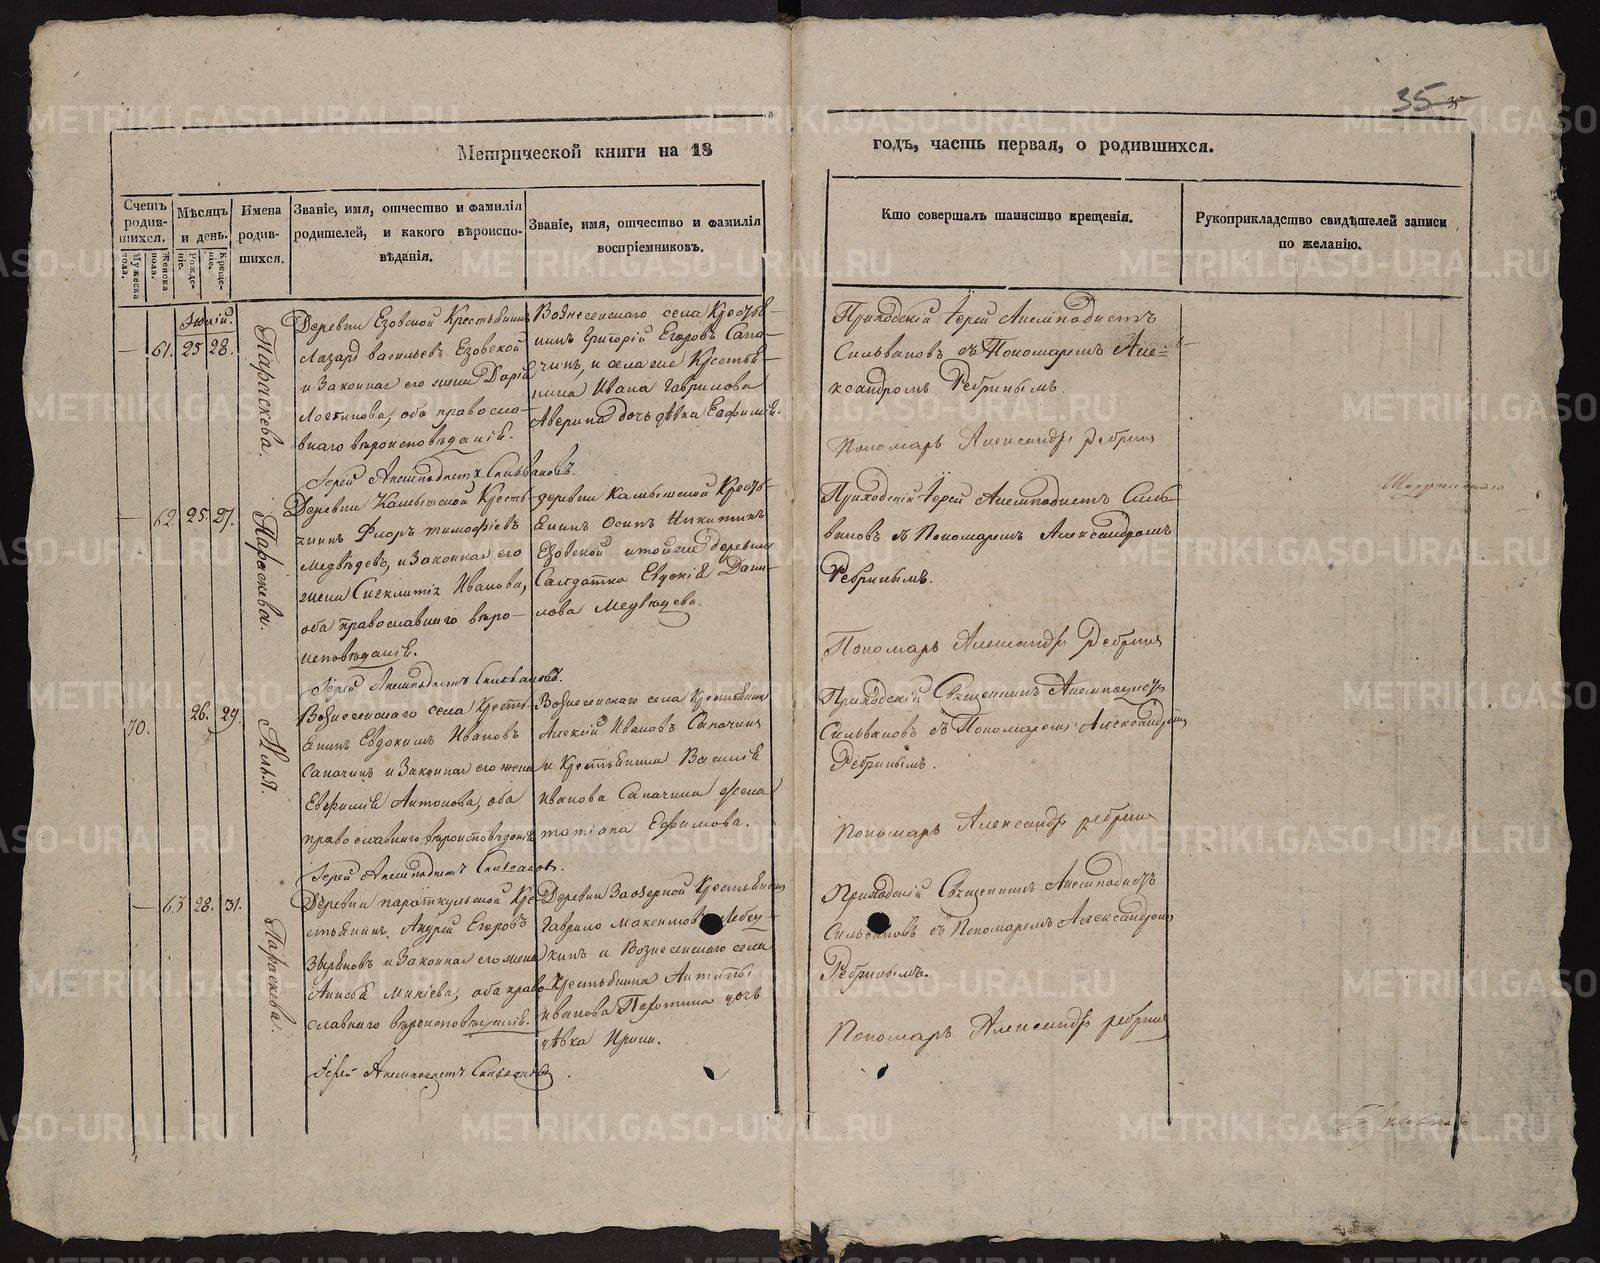 35
Метрической книги на 18
годъ, часть первая, о родившихся.
Счетъ родив-шихся.
Мужеска пола.
Женска пола.
Мѣсяцъ и день.
Рожде-ніе.
Креще-ніе.
Имена родив-шихся.
Званіе, имя, отчество и фамилія родителей, и какого вѣроиспо-вѣданія.
Званіе, имя, отчество и фамилія воспріемниковъ.
Кто совершалъ таинство крещенія.
Рукоприкладство свидѣтелей записи по желанію.
61. 25 28.
Параскева.
Деревни Езовской Крестьянинъ
Лазарь васильевъ Езовской
и Законная его жена Дарія
оба правосла-
внаго вѣроисповѣданій.
Іерей Анемподистъ Сильвановъ.
Вознесенскаго села Крестья-
нинъ Григорій Егоровъ Сапо-
чинъ, и села же Крестья-
нина Ивана Гаврилова
Аверина дочь дѣвка Евфимія.
Приходскій Іерей Анемподистъ
Сильвановъ съ Пономаремъ Але=
ксандромъ Ребринымъ.
Пономарь Александръ Ребринъ
62. 25. 27.
Параскева.
Деревни Камышской Кресть-
янинъ Флоръ тимофѣевъ
Медвѣдевъ, и Законная его
жена Синклитія Иванова,
оба православнаго вѣро-
исповѣданій.
Іерей Анемподистъ Сильвановъ.
деревни Камышской Кресть-
янинъ Осипъ Никитинъ
Езовской и той же деревни
Салдатка Евдокія Дани-
лова Медвѣдева.
Приходскій Іерей Анемподистъ Силь-
вановъ съ Пономаремъ Александромъ
Ребринымъ.
Пономарь Александръ Ребринъ
70. 26. 29.
Илья.
Вознесенскаго села Кресть-
янинъ Евдокимъ Ивановъ
Сапочинъ и Законная его жена
Евфимія Антонова, оба
православнаго вѣроисповѣданій
Іерей Анемподистъ Сильвановъ.
Вознесенскаго села Крестьянинъ
Алексій Ивановъ Сапочинъ
и Крестьянина Василія
иванова Сапочина жена
татіана Ефимова.
Приходскій Священникъ Анемподистъ
Сильвановъ съ Пономаремъ Александромъ
Ребринымъ.
Пономарь Александръ ребринъ
63 28. 31.
Параскева.
Деревни параткульской Кре-
стьянинъ Андрей Егоровъ
Зыряновъ и Законная его жена
оба право-
славнаго вѣроисповѣданій.
Іерей Анемподистъ Сильвановъ.
Деревни Заозерной Крестьянинъ
Гаврило Максимовъ
и Вознесенскаго села
Крестьянина Антипы
иванова дочь
дѣвка Ирина.
Приходскій Священникъ Анемподистъ
Сильвановъ съ Пономаремъ Александромъ
Ребринымъ.
Пономарь Александръ ребринъ
METRIKI.GASO-URAL.RU